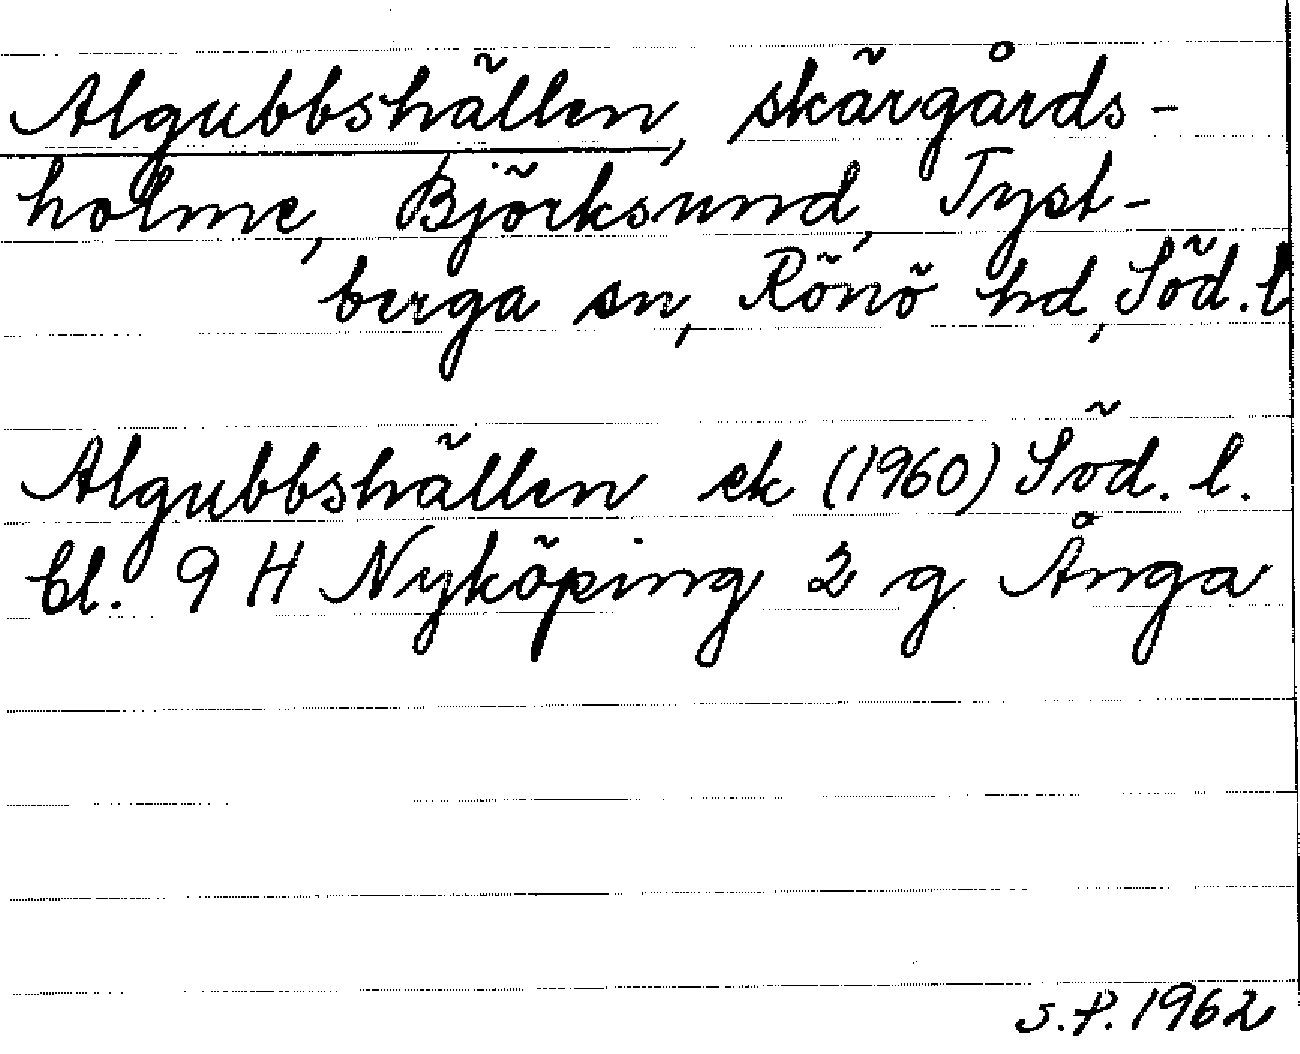 Algubbshällen, skärgårds-
holme, Björksund, Tyst-
berga sn, Rönö hd, Söd. l
Algubbshällen ek (1960) Söd. l.
bl. 9 H Nyköping 2 g Ånga
S.P. 1962